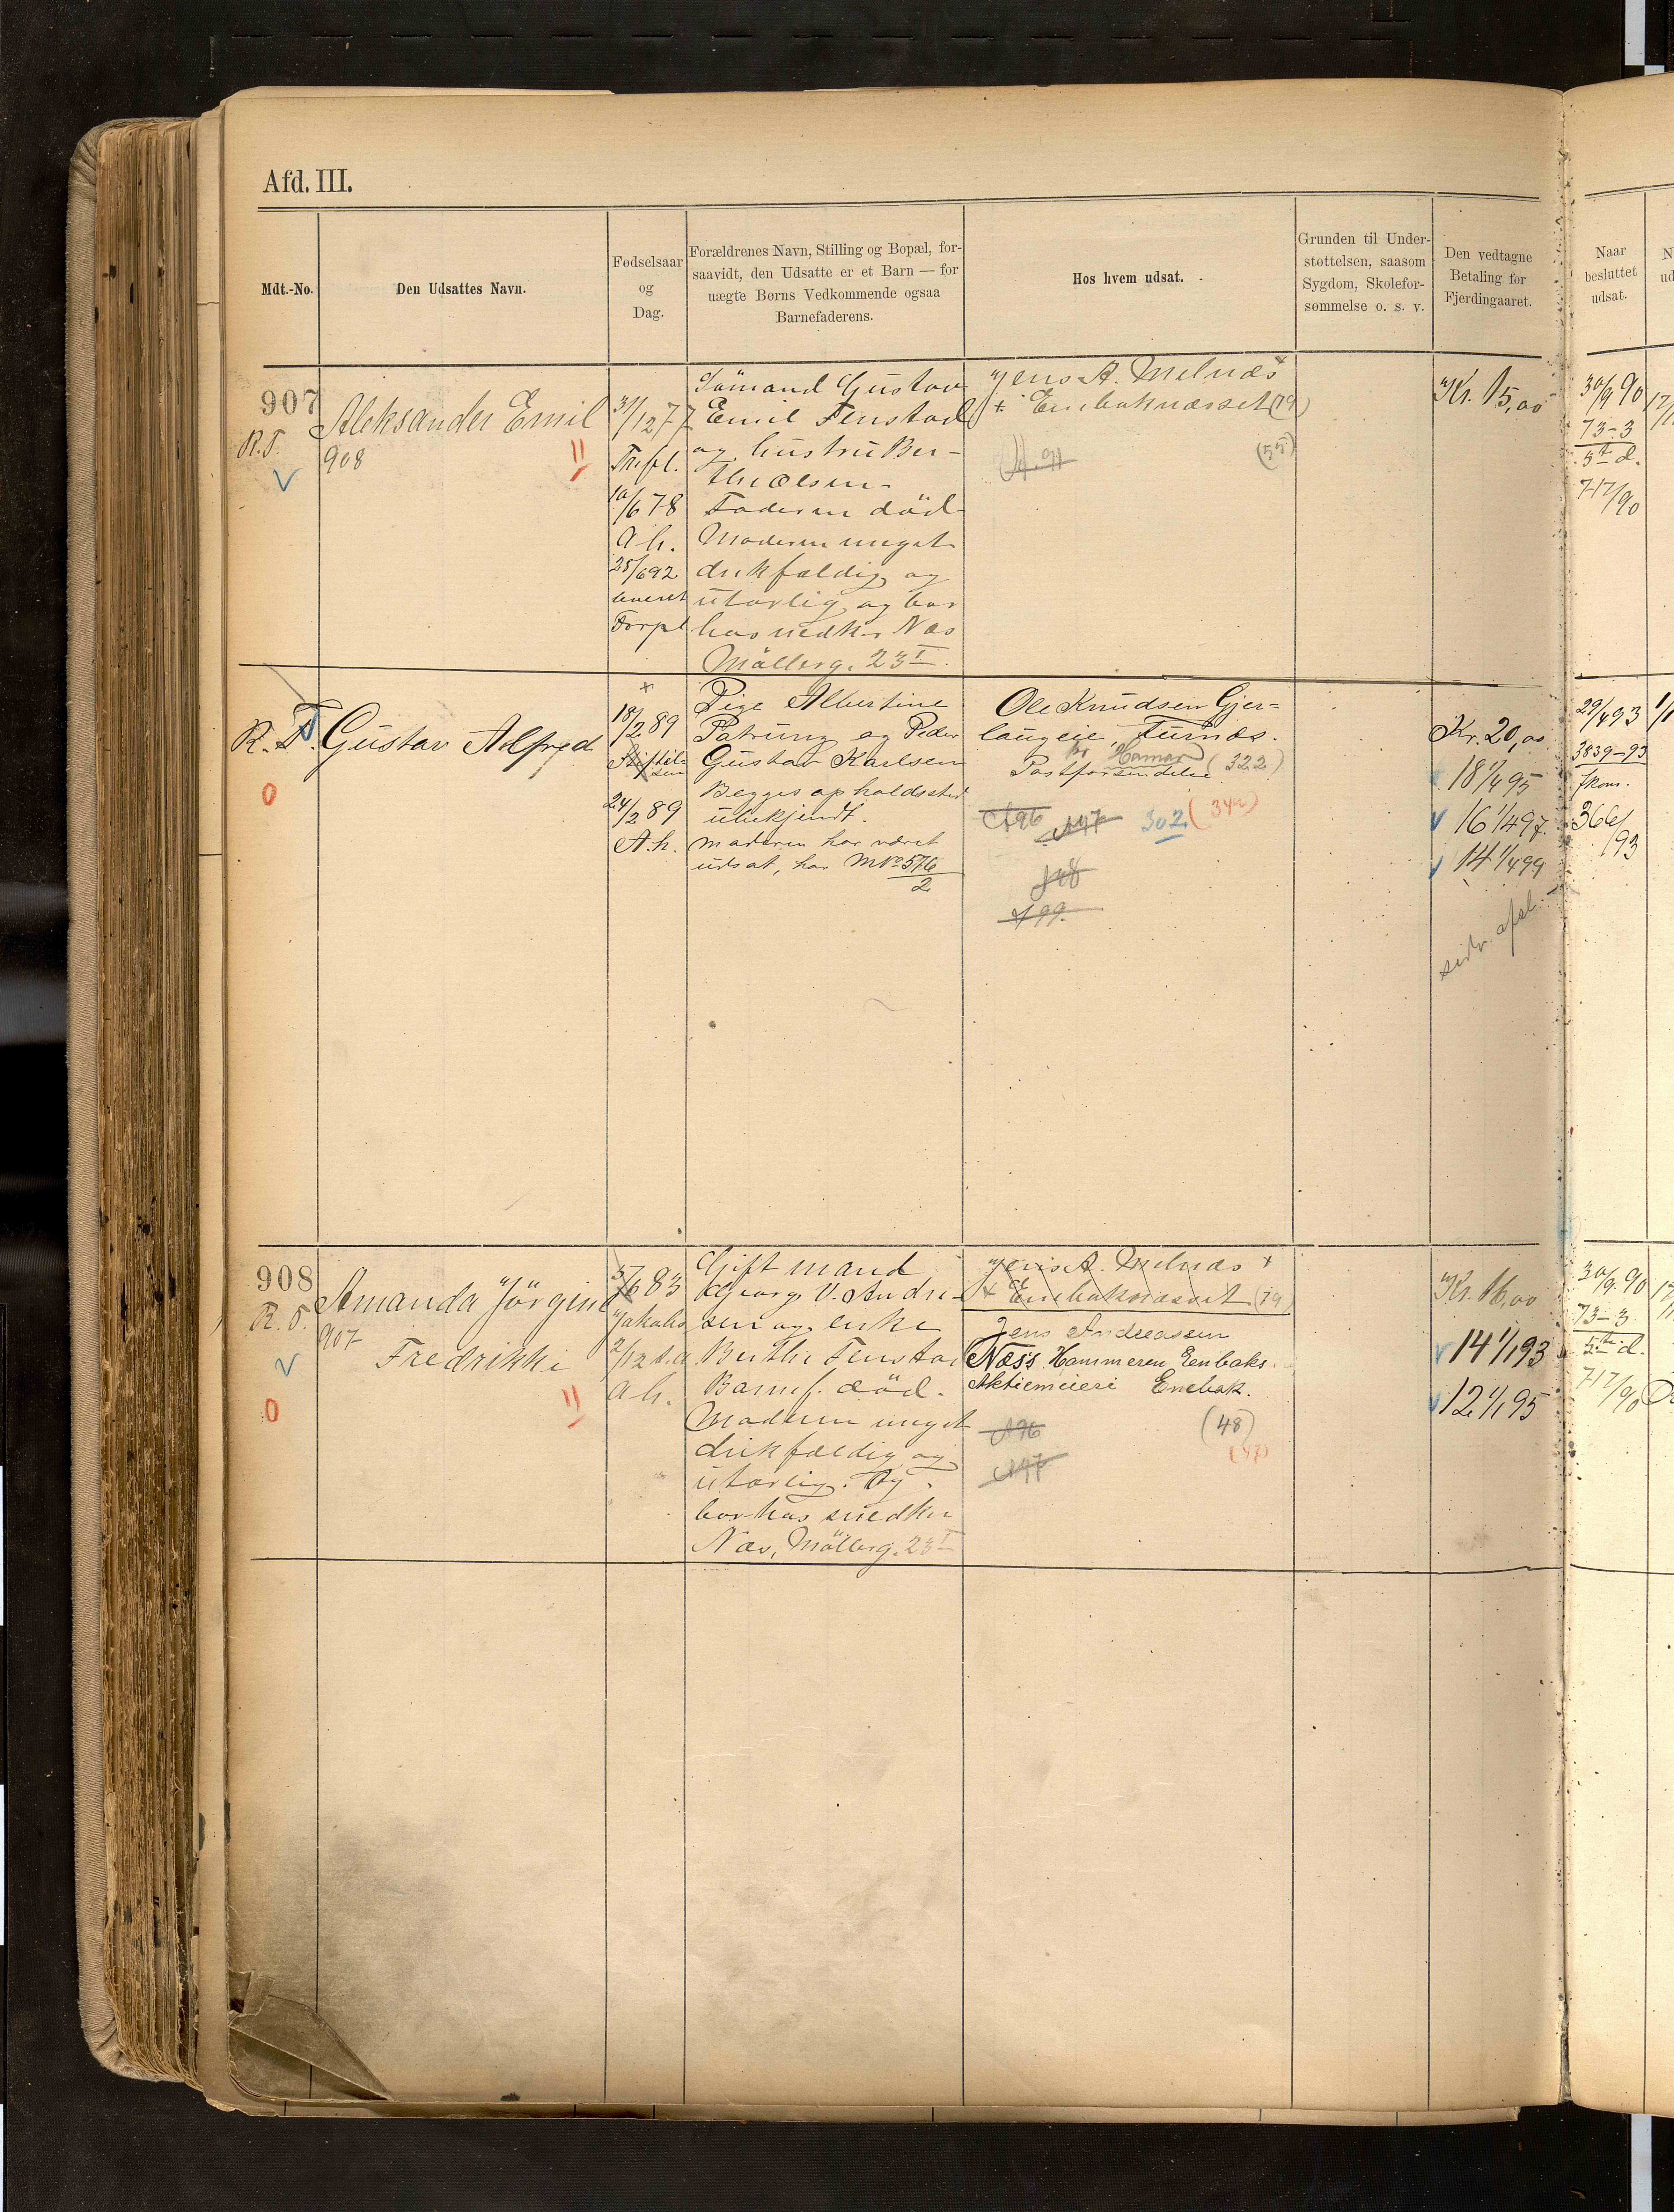 Afd. III.
Mdt.-No.
Den Udsattes Navn.
Fødselsaar
og
Dag.
Forældrenes Navn, Stilling og Bopæl, for-
saavidt, den Udsatte er et Barn — for
uægte Børns Vedkommende ogsaa
Barnefaderens.
Hos hvem udsat.
Grunden til Under-
støttelsen, saasom
Sygdom, Skolefor-
sømmelse o. s. v.
Den vedtagne
Betaling for
Fjerdingaaret.
Naar
besluttet
udsat.
907
R. T.
Aleksander Emil
908
31/12 77
Trefol.
10/6 78
A. h.
25/6 92
Forpl
Sömand Gustav
Emil Fenstad
og Hustru Ber-
the Olsen.
Faderen död
Moderen meget
drikfældig og
utærlig og bor
hos snedker Næs
Möllerg. 23 I.
Jens A. Melnæs
+ Enebaknæsset (19)
(55)
Kr. 15,00
30/9 90
73-3
5te d.
717/90
R. T.
Gustav Adfred
0
18/2 89
Stiftel-
sen
24/2 89
A. h.
Pige Albertine
og Peder
Gustav Karlsen
Begges opholdssted
ubekjendt.
Moderen har været
udsat, har M No 576
2
Ole Knudsen Gjer-
laugeie, Furnæs.
pr Hamar
Postforsendelse (322)
A 96 A 97 302 (342)
A 98
A 99.
Kr. 20,00
18 1/4 95
16 1/4 97.
14 1/4 99
29/4 93
3839-93
fkom.
366/93
908
R. T.
Amanda Jörgine
907
Fredrikke
0
5/6 83
Jakobs
2/12 s.a.
A. h.
Gift mand
Georg V. Andre-
sen og enke
Berthe Fenstad
Barnef. död.
Moderen meget
drikfældig og
utærlig. Og
bor hos snedker
Næs, Möllerg. 23 I
Jens A. Melnæs +
+ Enebaknæsset (19)
Jens Andreassen
Næss Hammeren, Enebaks
Aktiemeieri Enebak.
A 96 (48)
A 97 (47)
Kr. 16,00
14 1/1 93
12 1/1 95
30/9 90
73-3
5te d.
717/90